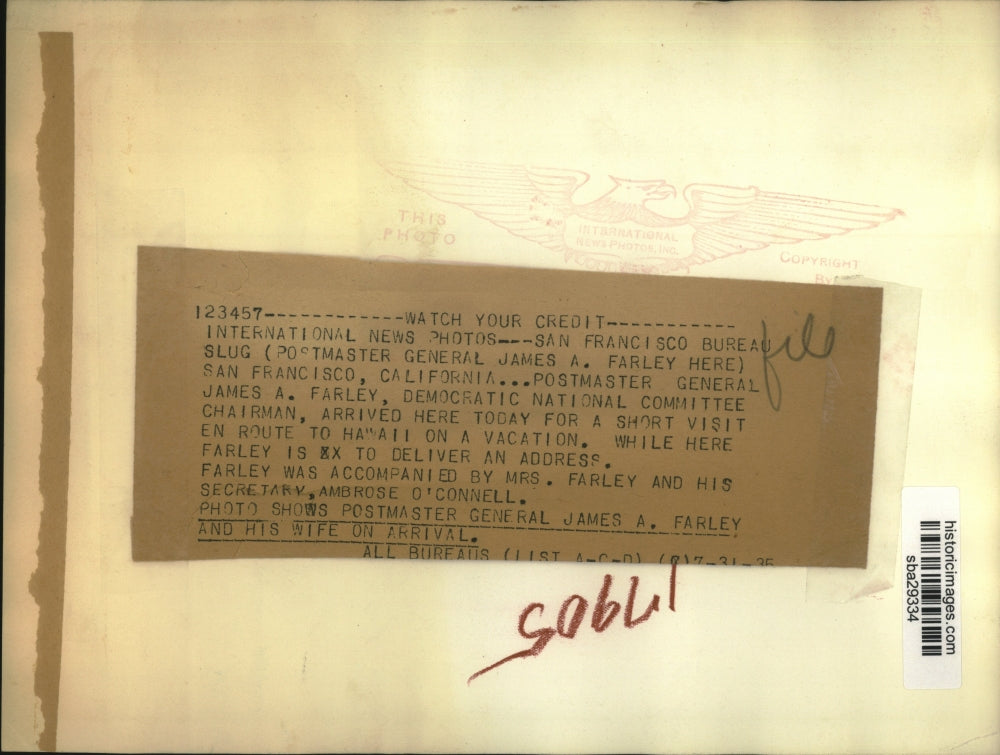 THIS
PHOTO
INTERNATIONAL
NEWS PHOTOS, INC.
COPYRIGHT
BY
123457-------------WATCH YOUR CREDIT------------
INTERNATIONAL NEWS PHOTOS----SAN FRANCISCO BUREAU
SLUG (POSTMASTER GENERAL JAMES A. FARLEY HERE)
SAN FRANCISCO, CALIFORNIA...POSTMASTER GENERAL
JAMES A. FARLEY, DEMOCRATIC NATIONAL COMMITTEE
CHAIRMAN, ARRIVED HERE TODAY FOR A SHORT VISIT
EN ROUTE TO HAWAII ON A VACATION. WHILE HERE
FARLEY IS XX TO DELIVER AN ADDRESS.
FARLEY WAS ACCOMPANIED BY MRS. FARLEY AND HIS
SECRETARY, AMBROSE O'CONNELL.
PHOTO SHOWS POSTMASTER GENERAL JAMES A. FARLEY
AND HIS WIFE ON ARRIVAL.
ALL BUREAUS (LIST A-C-D) 7-31-35
file
17905
historicimages.com
sba29334